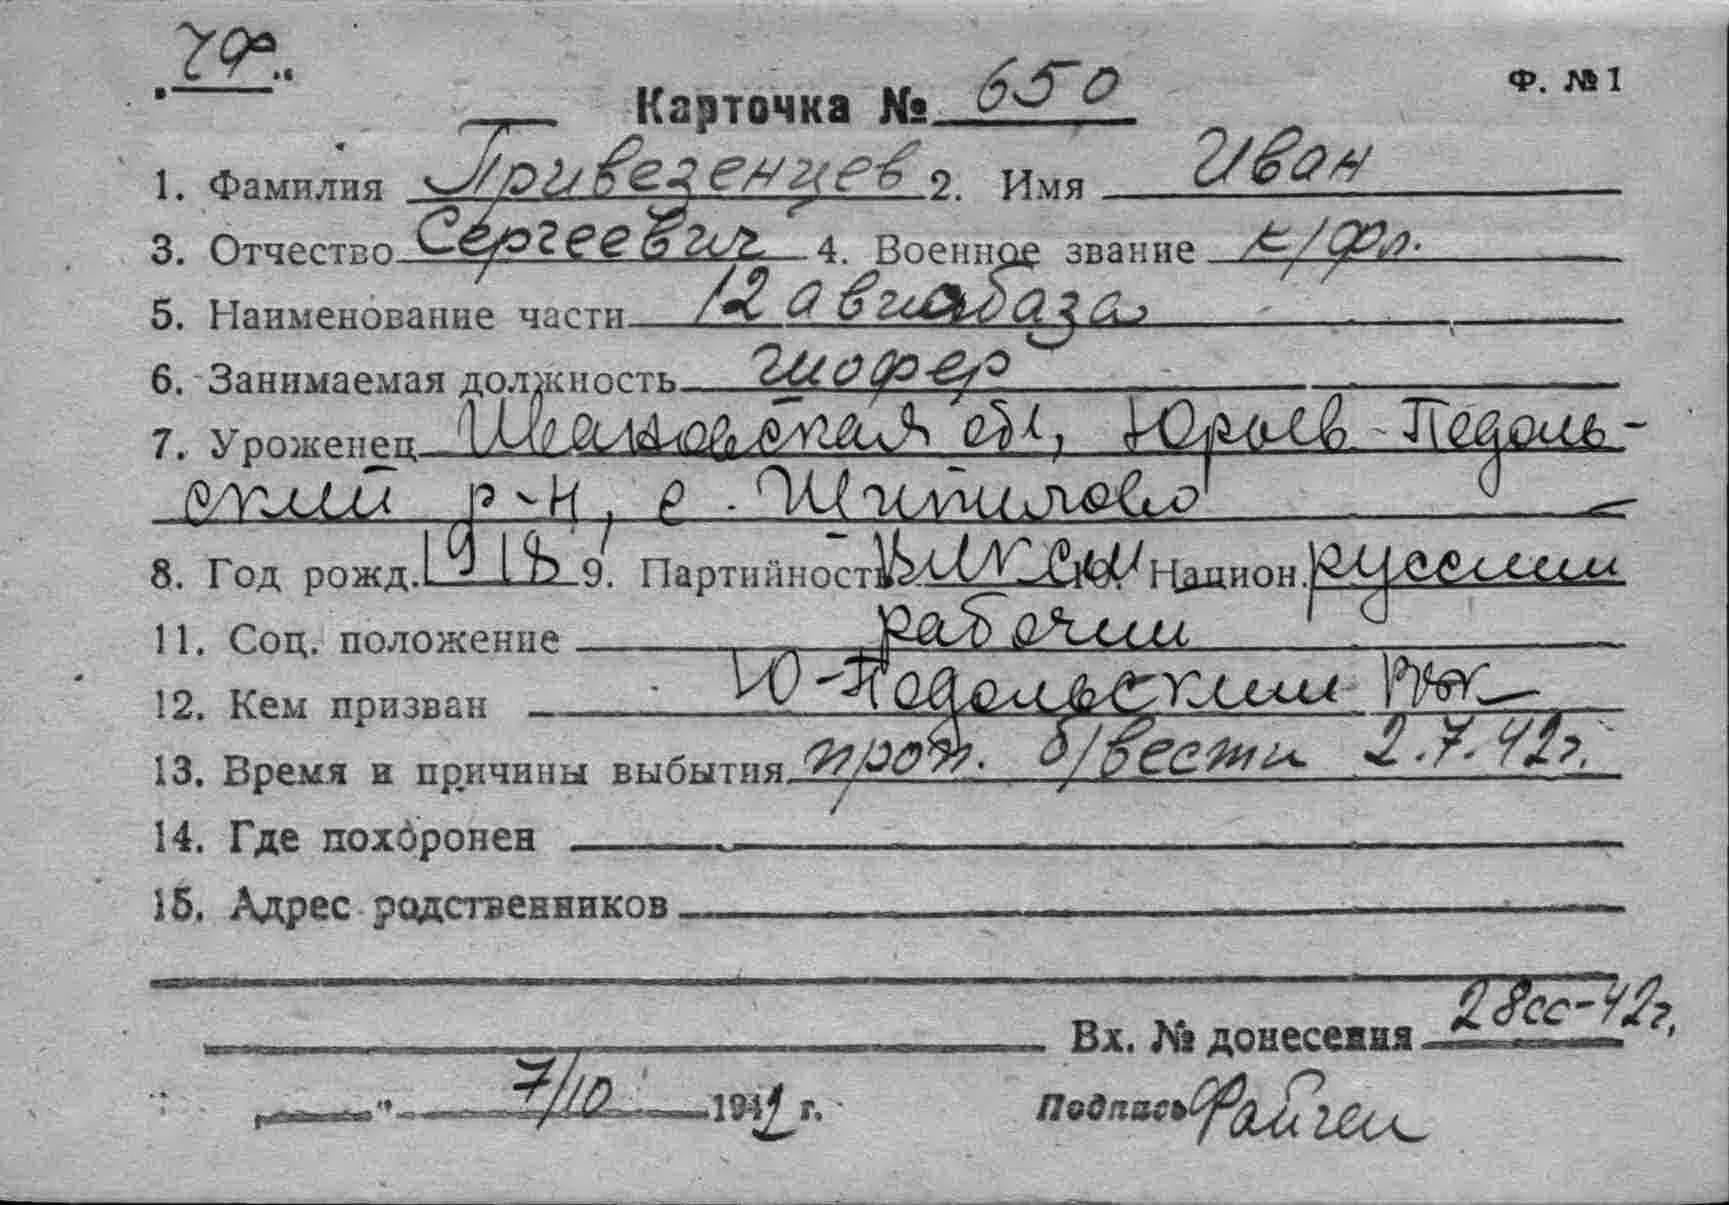 ЧФ.
Карточка № 650
Ф. № 1
1. Фамилия Привезенцев 2. Имя Иван
3. Отчество Сергеевич 4. Военное звание к/фл.
5. Наименование части 12 авиабаза
6. Занимаемая должность шофер
7. Уроженец Ивановская обл, Юрьев-Подоль-
ский р-н, с. Шипилово
8. Год рожд. 1918 9. Партийность ВЛКСМ 10. Национ. русский
11. Соц. положение рабочий
12. Кем призван Ю-Подольский РВК
13. Время и причины выбытия проп. б/вести 2.7.42г.
14. Где похоронен
15. Адрес родственников
Вх. № донесения 28сс-42г.
" 7/10 1942 г. Подпись